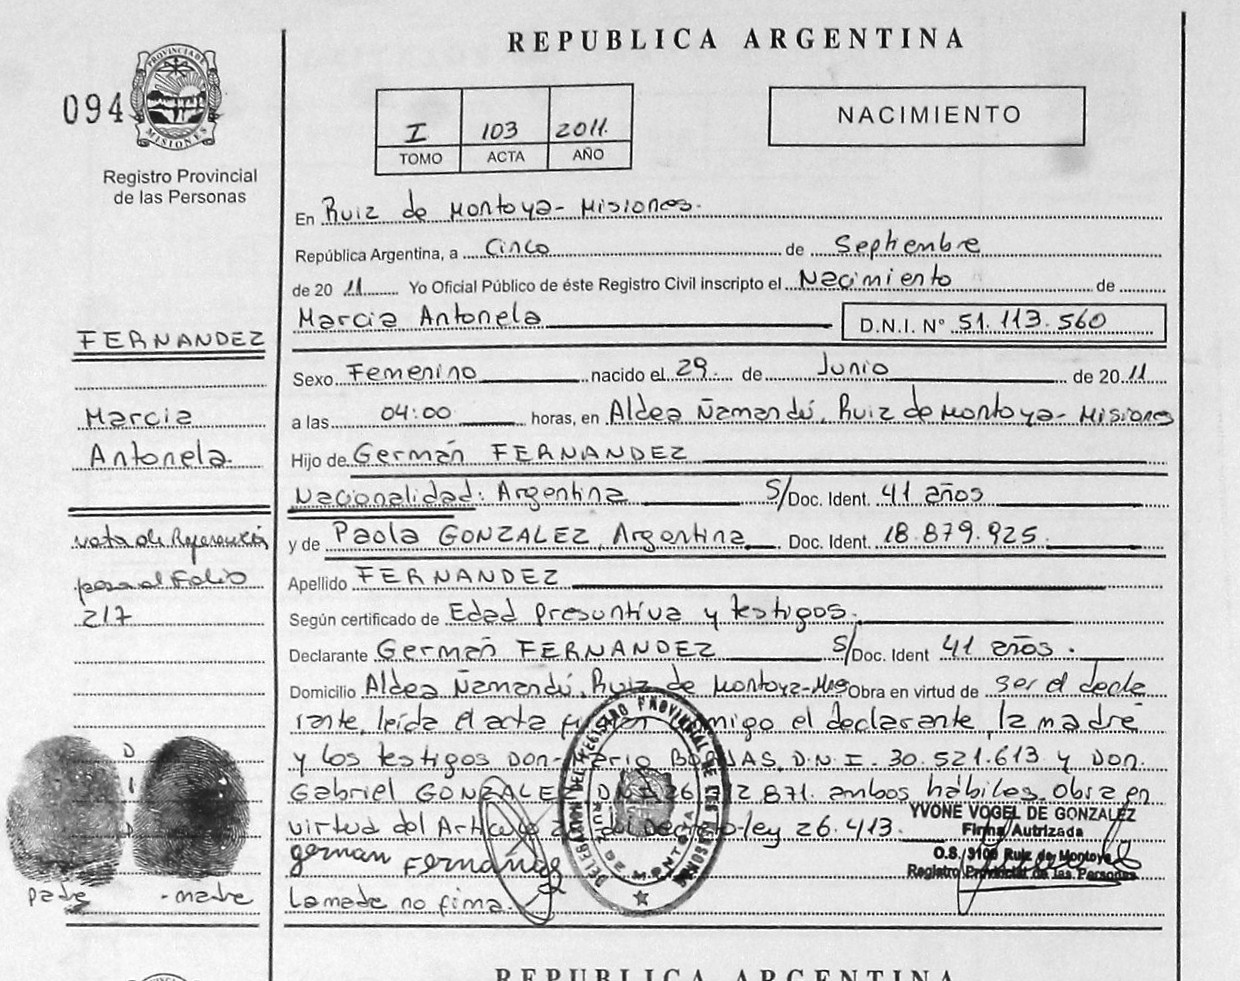 REPUBLICA ARGENTINA
094
PROVINCIA DE MISIONES
Registro Provincial
de las Personas
I 103 2011.
TOMO ACTA AÑO
NACIMIENTO
En Ruiz de Montoya- Misiones.
República Argentina, a Cinco de Septiembre
de 20 11 Yo Oficial Público de éste Registro Civil inscripto el Nacimiento de
Marcia Antonela D.N.I. Nº 51.113.560
FERNANDEZ
Marcia
Antonela.
Sexo Femenino nacido el 29. de Junio de 20 11
a las 04:00 horas, en Aldea Ñamandú, Ruiz de Montoya- Misiones
Hijo de Germán FERNANDEZ
Nacionalidad: Argentina S/Doc. Ident. 41 años
y de Paola GONZALEZ, Argentina Doc. Ident. 18.879.925.
Apellido FERNANDEZ
Según certificado de Edad Presuntiva y testigos.
Declarante Germán FERNANDEZ S/Doc. Ident 41 años.
Domicilio Aldea Ñamandú, Ruiz de Montoya-Mis Obra en virtud de ser el decla
rante, leída el acta migo el declarante, la madre
y los testigos Don D.N.I. 30.521.613 y Don.
Gabriel 871. ambos hábiles. Obra en
virtud del Artículo Decreto-ley 26.413.
german Fernandez
La made no fima.
nota de Referencia
pasa al Folio
217
D
I
D
padre - madre
DELEGACION DEL REGISTRO PROVINCIAL DE LAS PERSONAS
RUIZ DE MONTOYA
YVONE VOGEL DE GONZALEZ
Firma Autrizada
O.S. 3100 Ruiz de Montoya
Registro Provincial de las Personas
REPUBLICA ARGENTINA